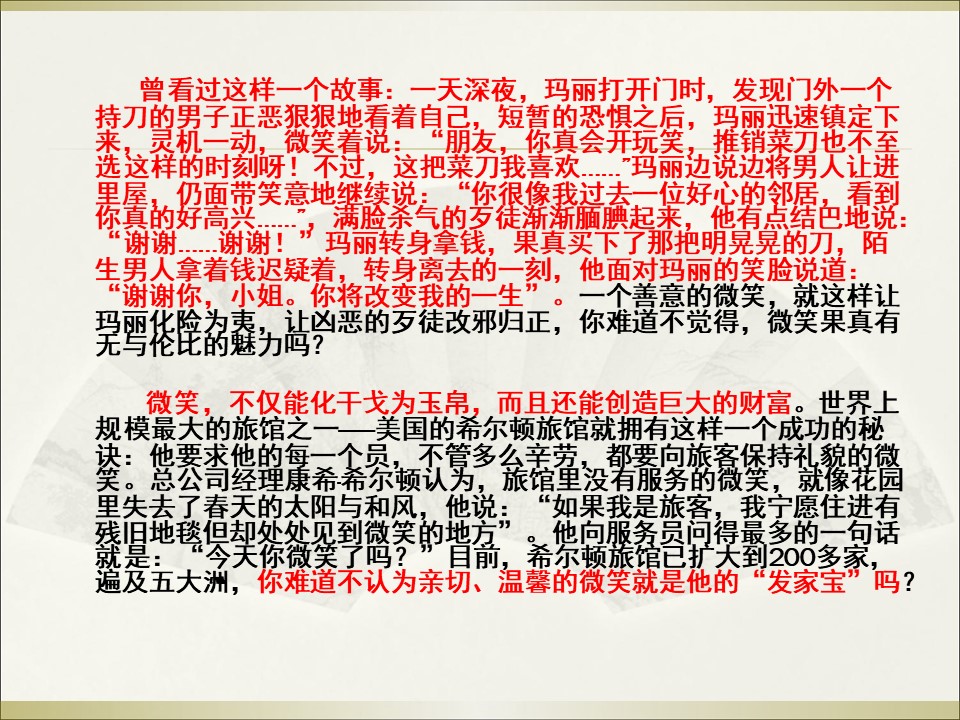 曾看过这样一个故事：一天深夜，玛丽打开门时，发现门外一个
持刀的男子正恶狠狠地看着自己，短暂的恐惧之后，玛丽迅速镇定下
来，灵机一动，微笑着说：“朋友，你真会开玩笑，推销菜刀也不至
选这样的时刻呀！不过，这把菜刀我喜欢……”玛丽边说边将男人让进
里屋，仍面带笑意地继续说：“你很像我过去一位好心的邻居，看到
你真的好高兴……”，满脸杀气的歹徒渐渐腼腆起来，他有点结巴地说：
“谢谢……谢谢！”玛丽转身拿钱，果真买下了那把明晃晃的刀，陌
生男人拿着钱迟疑着，转身离去的一刻，他面对玛丽的笑脸说道：
“谢谢你，小姐。你将改变我的一生”。一个善意的微笑，就这样让
玛丽化险为夷，让凶恶的歹徒改邪归正，你难道不觉得，微笑果真有
无与伦比的魅力吗？
微笑，不仅能化干戈为玉帛，而且还能创造巨大的财富。世界上
规模最大的旅馆之一——美国的希尔顿旅馆就拥有这样一个成功的秘
诀：他要求他的每一个员，不管多么辛劳，都要向旅客保持礼貌的微
笑。总公司经理康希-希尔顿认为，旅馆里没有服务的微笑，就像花园
里失去了春天的太阳与和风，他说：“如果我是旅客，我宁愿住进有
残旧地毯但却处处见到微笑的地方”。他向服务员问得最多的一句话
就是：“今天你微笑了吗？”目前，希尔顿旅馆已扩大到200多家，
遍及五大洲，你难道不认为亲切、温馨的微笑就是他的“发家宝”吗？